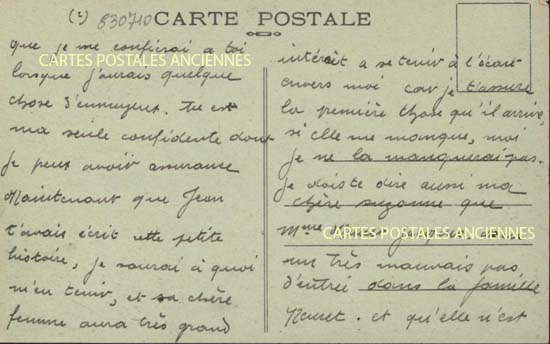 (2) 830710 CARTE POSTALE
que je me confierai a toi
CARTES POSTALES ANCIENNES
lorsque j'aurais quelque
chose d'ennuyeux. Tu est
ma seule confidente dont
je peux avoir assurance
Maintenant que Jean
t'avais écrit cette petite
histoire, je saurai à quoi
m'en tenir, et sa chère
femme aura très grand
intérêt a se tenir à l'écart
CARTES POSTALES ANCIENNES
envers moi car je t'assure
la première chose qu'il arrive,
si elle me manque, moi
je ne la manquerai pas.
je dois te dire aussi ma
chère suzanne que
Mme
CARTES POSTALES ANCIENNES
un très mauvais pas
d'entrée dans la famille
et qu'elle n'est